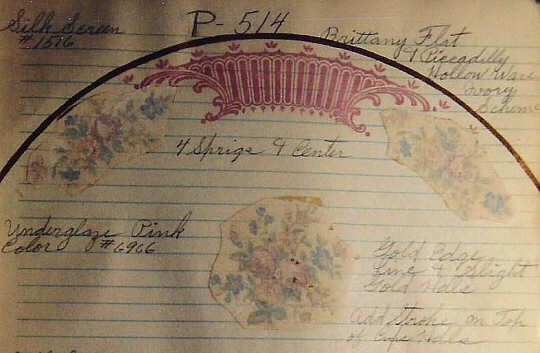 Silk Screen
# 1576
P-514
Brittany Flat
& Piccadilly
Hollow Ware
Ivory
Scheme
4 Sprigs & Center
Underglaze Pink
Color #6966
Gold Edge
Line &
Gold Hdls
Add Stroke on Top
of Cups Hdls